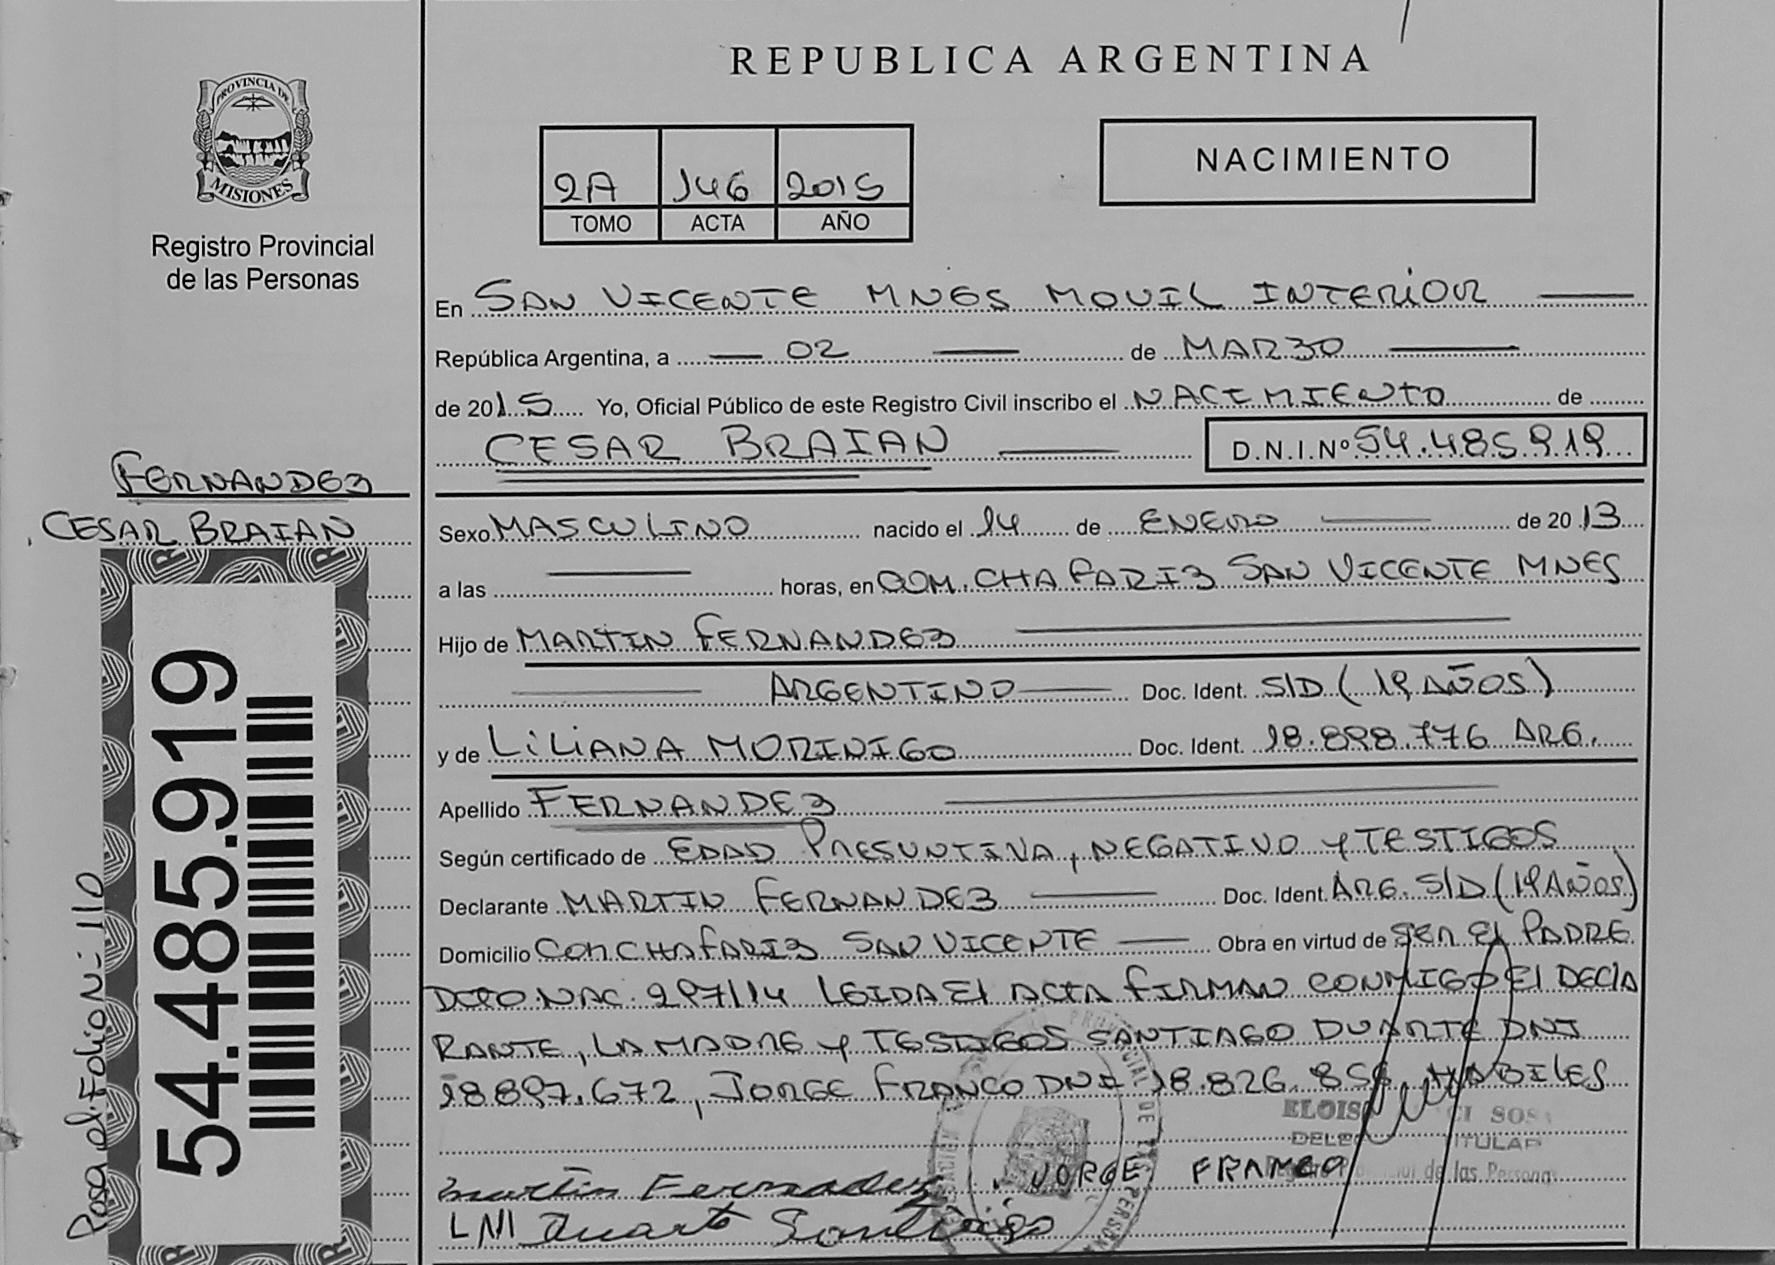 REPUBLICA ARGENTINA
PROVINCIA DE
MISIONES
Registro Provincial
de las Personas
2A 146 2015
TOMO ACTA AÑO
NACIMIENTO
En SAN VICENTE MNES MOVIL INTERIOR
República Argentina, a 02 de MARZO
de 2015 Yo, Oficial Público de este Registro Civil inscribo el NACIMIENTO de
CESAR BRAIAN D.N.I.Nº 54.485.919
FERNANDEZ
CESAR BRAIAN
Sexo MASCULINO nacido el 14 de ENERO de 2013
a las horas, en COM. CHAFARIZ SAN VICENTE MNES
Hijo de MARTIN FERNANDEZ
ARGENTINO Doc. Ident. S/D (19 AÑOS)
y de LILIANA MORINIGO Doc. Ident. 18.898.776 ARG.
Apellido FERNANDEZ
Según certificado de EDAD PRESUNTIVA, NEGATIVO y TESTIGOS
Declarante MARTIN FERNANDEZ Doc. Ident. ARG. S/D (19 AÑOS)
Domicilio COM CHAFARIZ SAN VICENTE Obra en virtud de SER El PADRE
DCTO. NAC. 297/14 LEIDA El ACTA FIRMAN CONMIGO El DECLA
RANTE, LA MADRE y TESTIGOS SANTIAGO DUARTE DNI
18.897.672, JORGE FRANCO DNI 18.826.859 HABILES
ELOISA CI SOSA
TITULAR
de las Personas
martin Fernadez JORGE FRANCO
LNI Duarte Santiago
54.485.919
Pasa al Folio Nº 110